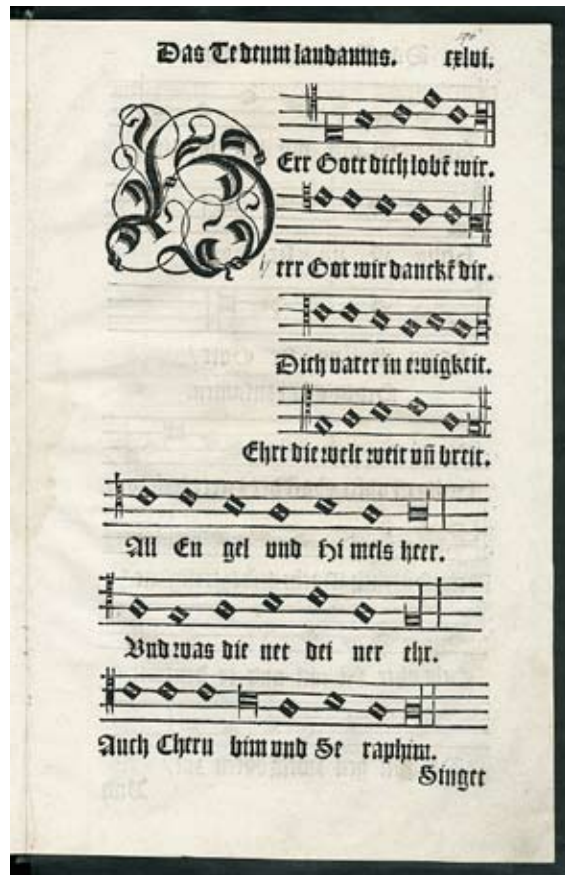 Das Te deum laudamus. cxlvi.
HErr Gott dich lobē wir.
Herr Got wir danckē dir.
Dich vater in ewigkeit.
Ehrt die welt weit vñ breit.
All En gel vnd Hi mels heer.
Vnd was die net dei ner ehr.
Auch Cheru bim vnd Se raphim.
Singet